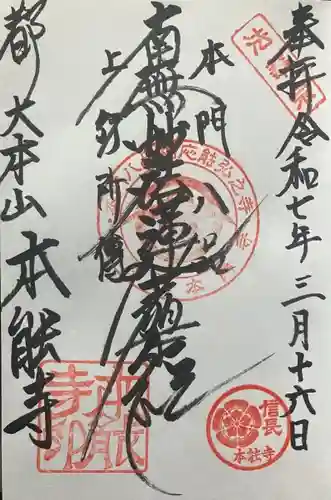 奉拝 令和七年三月十六日
本門八品
南無妙法蓮華経
上行所傳
都 大本山 本能寺
信長
本能寺